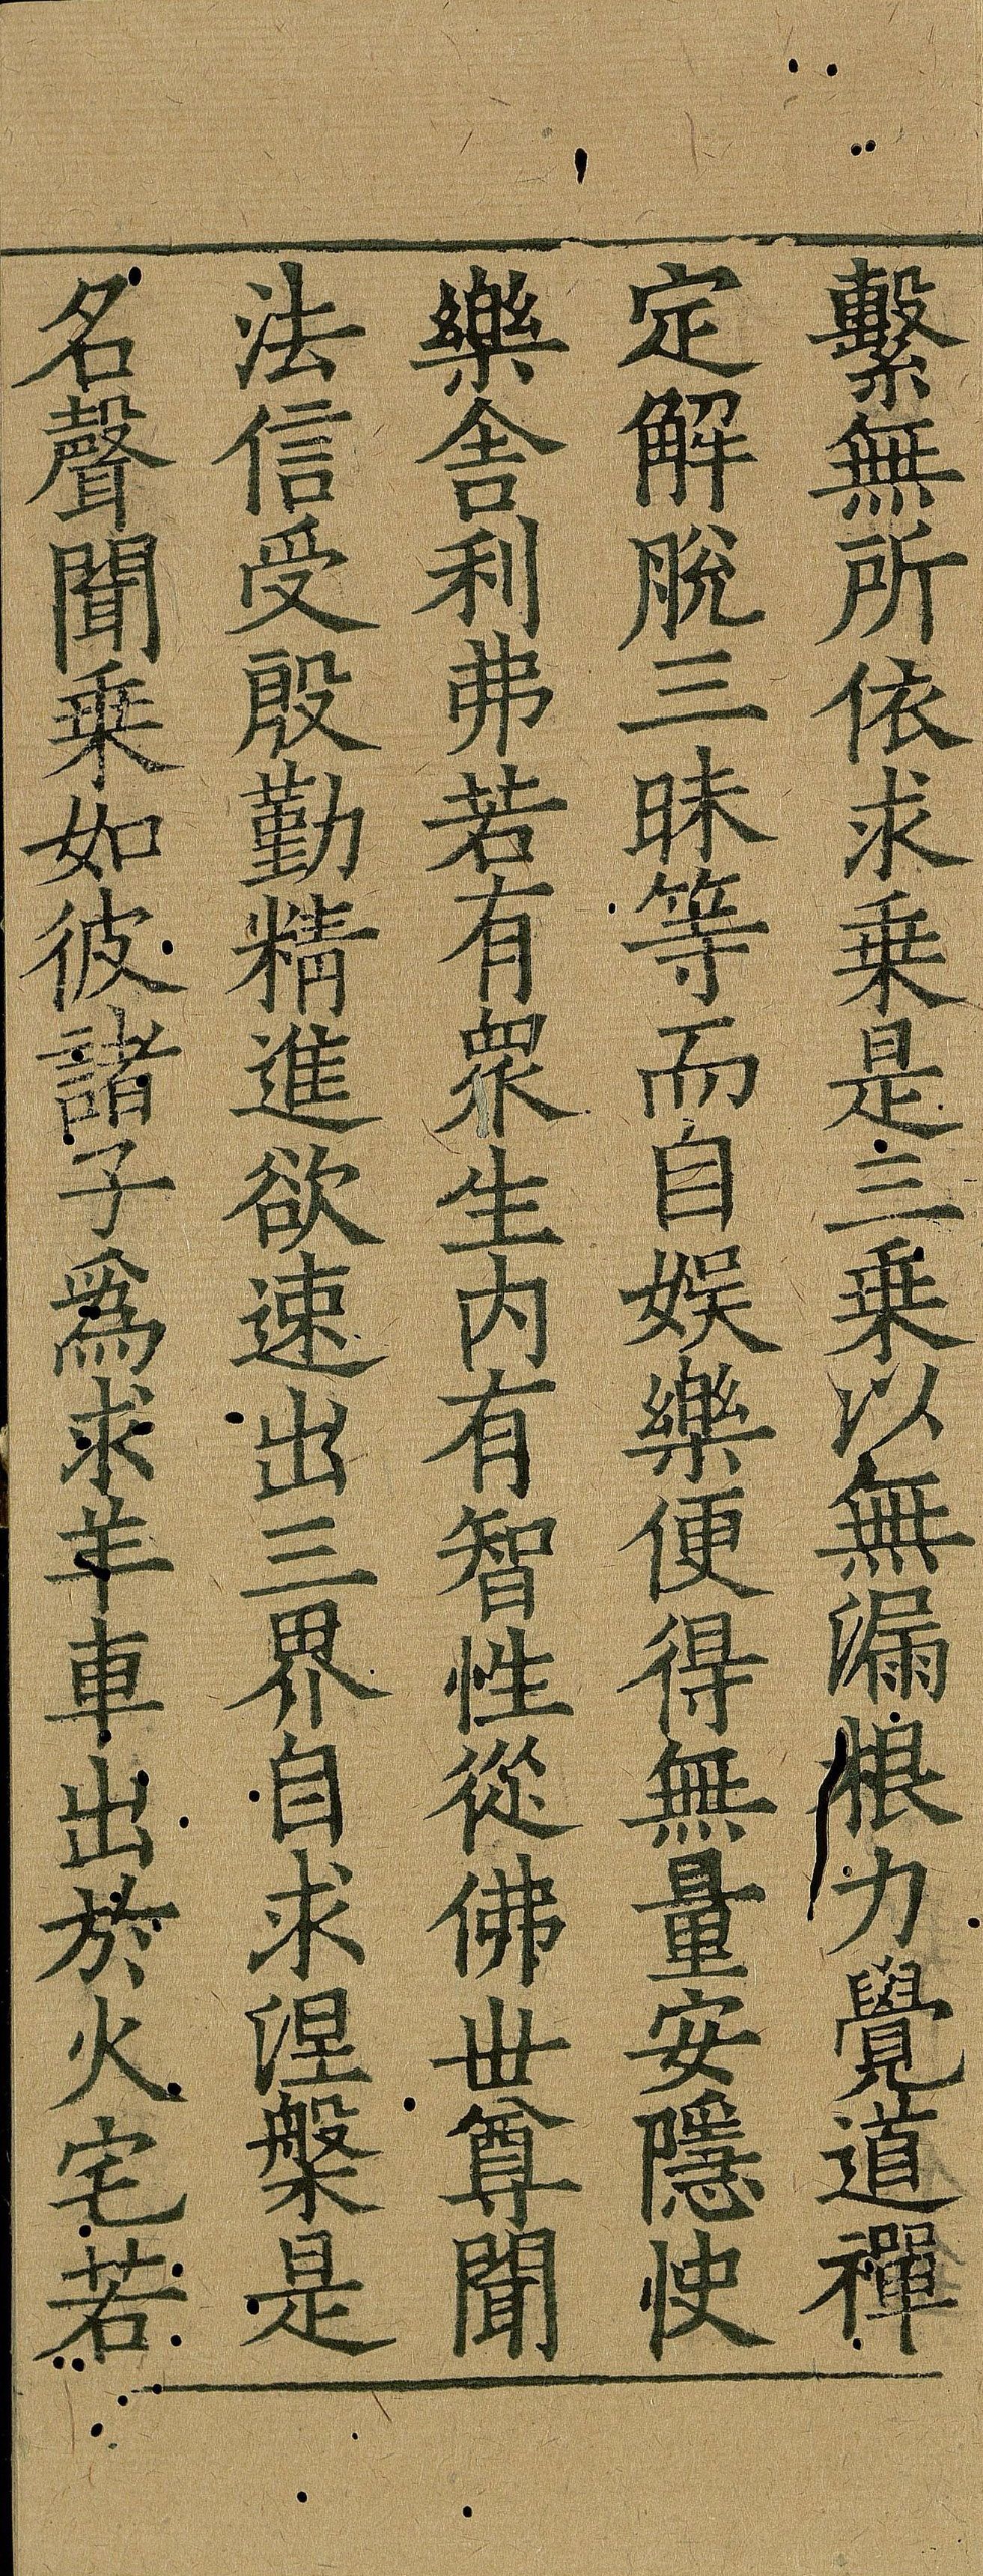 繫無所依求乗是三乗以無漏根力覺道禪
定解脫三昧等而自娱樂便得無量安隱快
樂舍利弗若有衆生内有智性從佛世尊聞
法信受殷勤精進欲速出三界自求涅槃是
名聲聞乗如彼諸子爲求羊車出於火宅若